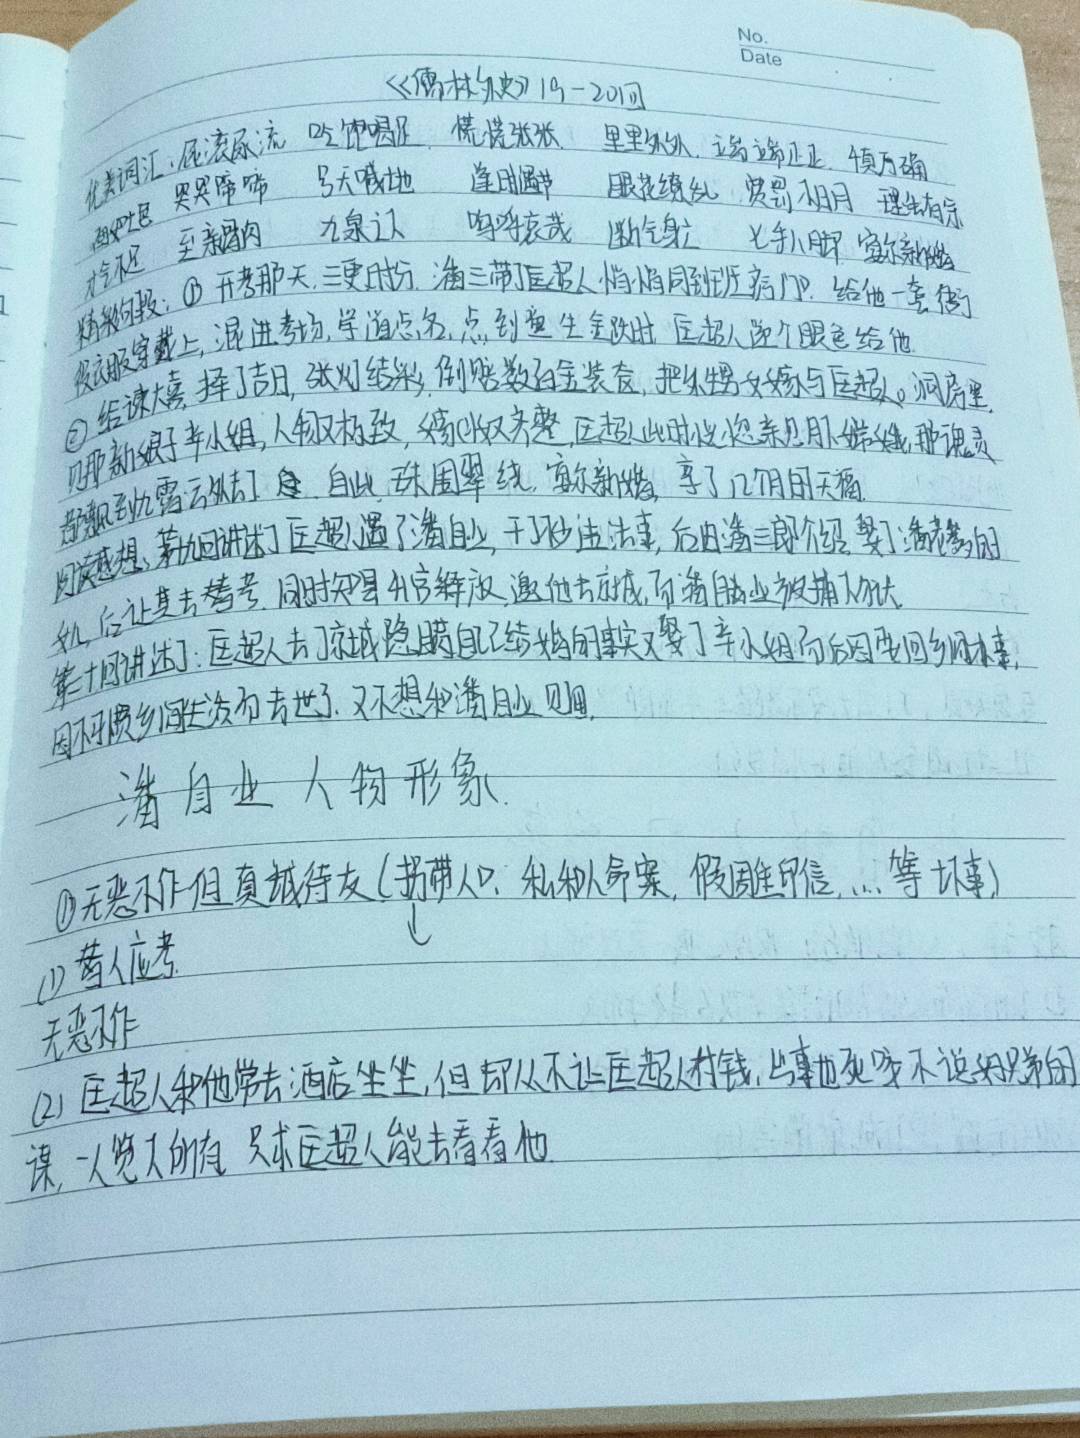 No.
Date
《儒林外史》19-20回
优美词汇：屁滚尿流 吃饱喝足 慌慌张张 里里外外 端端正正 慎乃确
哭哭啼啼 号天喊地 逢时遇节 眼花缭乱 赏罚不明 理生有宗
才气不足 至亲骨肉 九泉之下 呜呼哀哉 断气身亡 七手八脚 宴尔新婚
精彩句段：① 开考那天，三更时分，潘三带了匡超人悄悄同到班房门口，给他一套衙
役衣服穿戴上，混进考场，学道点名，点到童生金跃时，匡超人递个眼色给他
② 给谏大喜，择了吉日，张灯结彩，倒赔数百金装奁，把外甥女嫁与匡超人。洞房里，
见那新娘子辛小姐，人物又标致，嫁妆又齐整，匡超人此时恍忽亲见月下嫦娥，那魂灵
都飘到九霄云外去了 自此，珠围翠绕，宴尔新婚，享了几个月的天福
阅读感想：第九回讲述了匡超人遇了潘自业，干了些违法事，后由潘三郎介绍娶了潘老爹的
女儿，后让其去替考，同时知县升官释放，邀他去京城，而潘自业被捕入狱
第二十回讲述了：匡超人去了京城隐瞒自己结婚的事实又娶了辛小姐而后因要回乡
因不习惯乡间生活而去世了，又不想和潘自业见面
潘自业人物形象
①无恶不作但真诚待友（拐带人口、私和人命案，假雕印信，…等坏事）
↓
(1) 替人应考
无恶不作
(2) 匡超人和他常去酒店坐坐，但却从不让匡超人付钱，出事也死咬不说
谋，一人 只求匡超人能去看看他